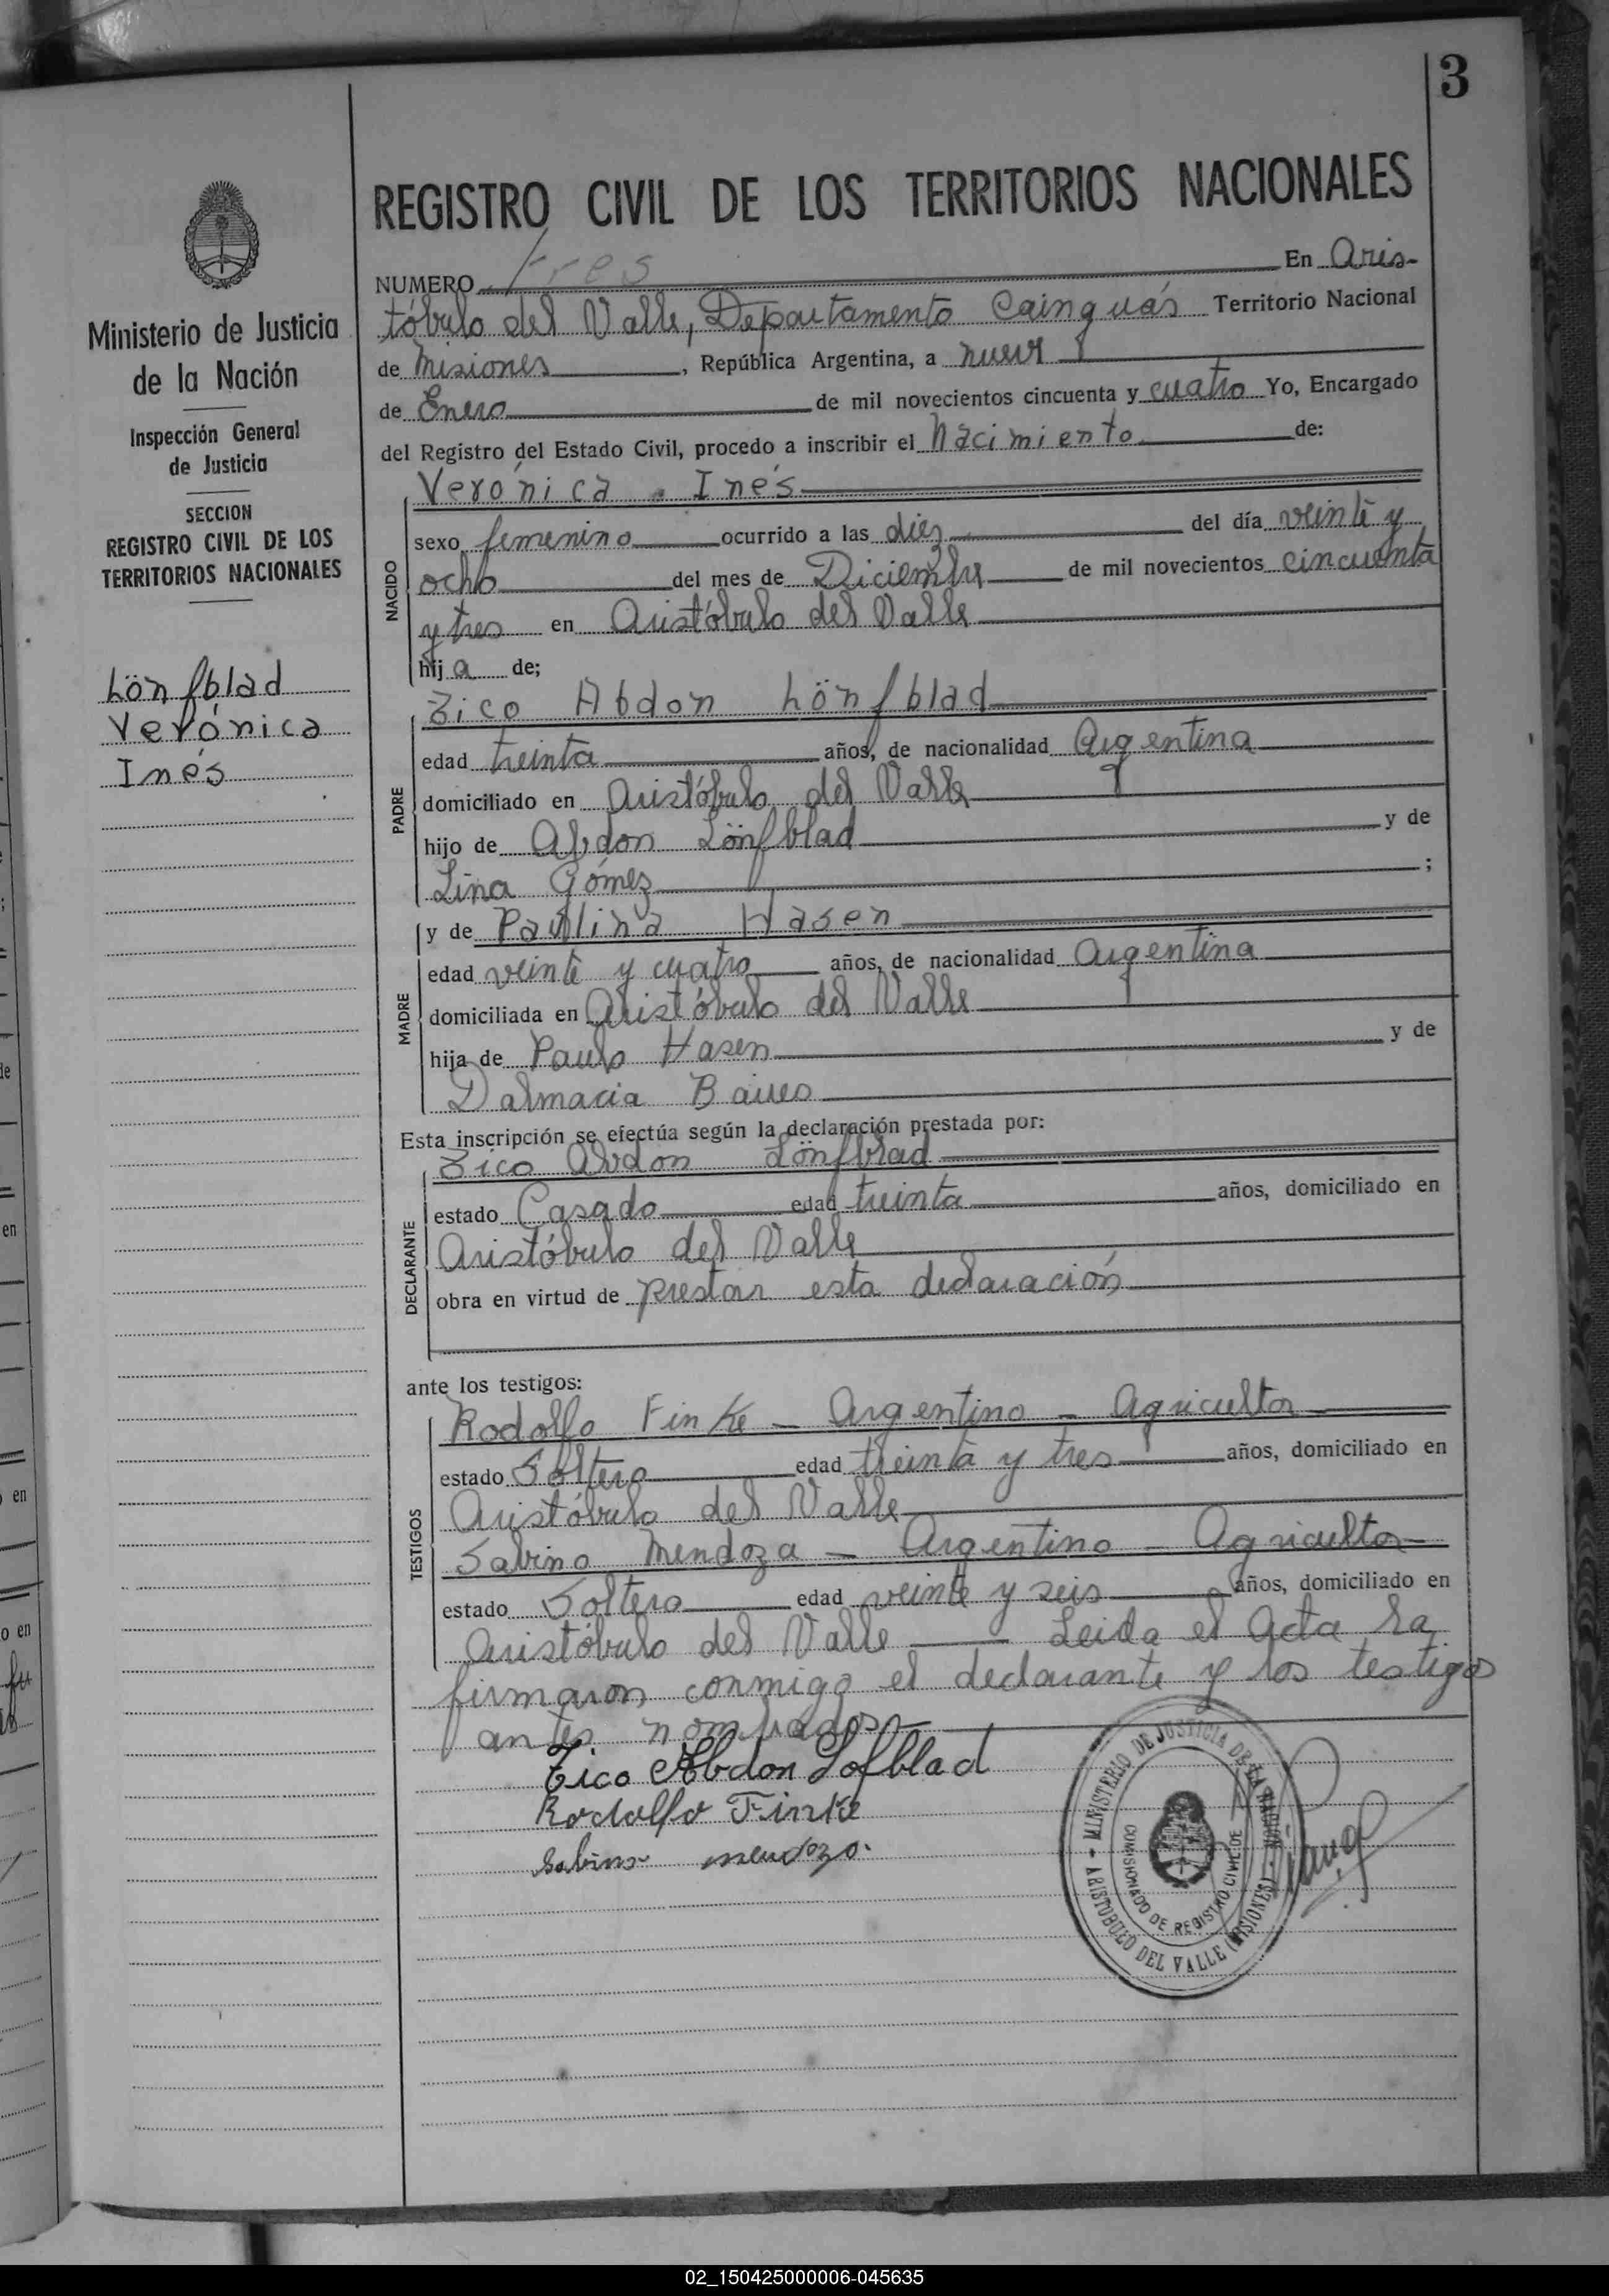 3
REGISTRO CIVIL DE LOS TERRITORIOS NACIONALES
NUMERO tres En Aris-
tóbulo del Valle, Departamento Cainguás Territorio Nacional
de Misiones, República Argentina, a nueve
de Enero de mil novecientos cincuenta y cuatro Yo, Encargado
del Registro del Estado Civil, procedo a inscribir el Nacimiento de:
Verónica Inés
sexo femenino ocurrido a las diez del día veinte y
ocho del mes de Diciembre de mil novecientos cincuenta
y tres en Aristóbulo del Valle
hija de;
NACIDO
Zico Abdon Lönfblad
edad treinta años, de nacionalidad Argentina
domiciliado en Aristóbulo del Valle
hijo de Abdon Lönfblad y de
Lina Gómez ;
PADRE
y de Paulina Hasen
edad veinte y cuatro años, de nacionalidad Argentina
domiciliada en Aristóbulo del Valle
hija de Paulo Hasen y de
Dalmacia
MADRE
Esta inscripción se efectúa según la declaración prestada por:
Zico Abdon Lönfblad
estado Casado edad treinta años, domiciliado en
Aristóbulo del Valle
obra en virtud de prestar esta declaración
DECLARANTE
ante los testigos:
Rodolfo Finke - Argentino - Agricultor
estado Soltero edad treinta y tres años, domiciliado en
Aristóbulo del Valle
Sabino Mendoza - Argentino - Agricultor
estado Soltero edad veinte y seis años, domiciliado en
Aristóbulo del Valle Leida el Acta la
firmaron conmigo el declarante y los testigos
antes nombrados
TESTIGOS
Zico Abdon Lofblad
Rodolfo Finke
Sabino mendozo.
MINISTERIO DE JUSTICIA DE LA NACION
ARISTOBULO DEL VALLE (MISIONES)
COMISIONADO DE REGISTRO CIVIL DE
Ministerio de Justicia
de la Nación
Inspección General
de Justicia
SECCION
REGISTRO CIVIL DE LOS
TERRITORIOS NACIONALES
Lönfblad
Verónica
Inés
02_150425000006-045635